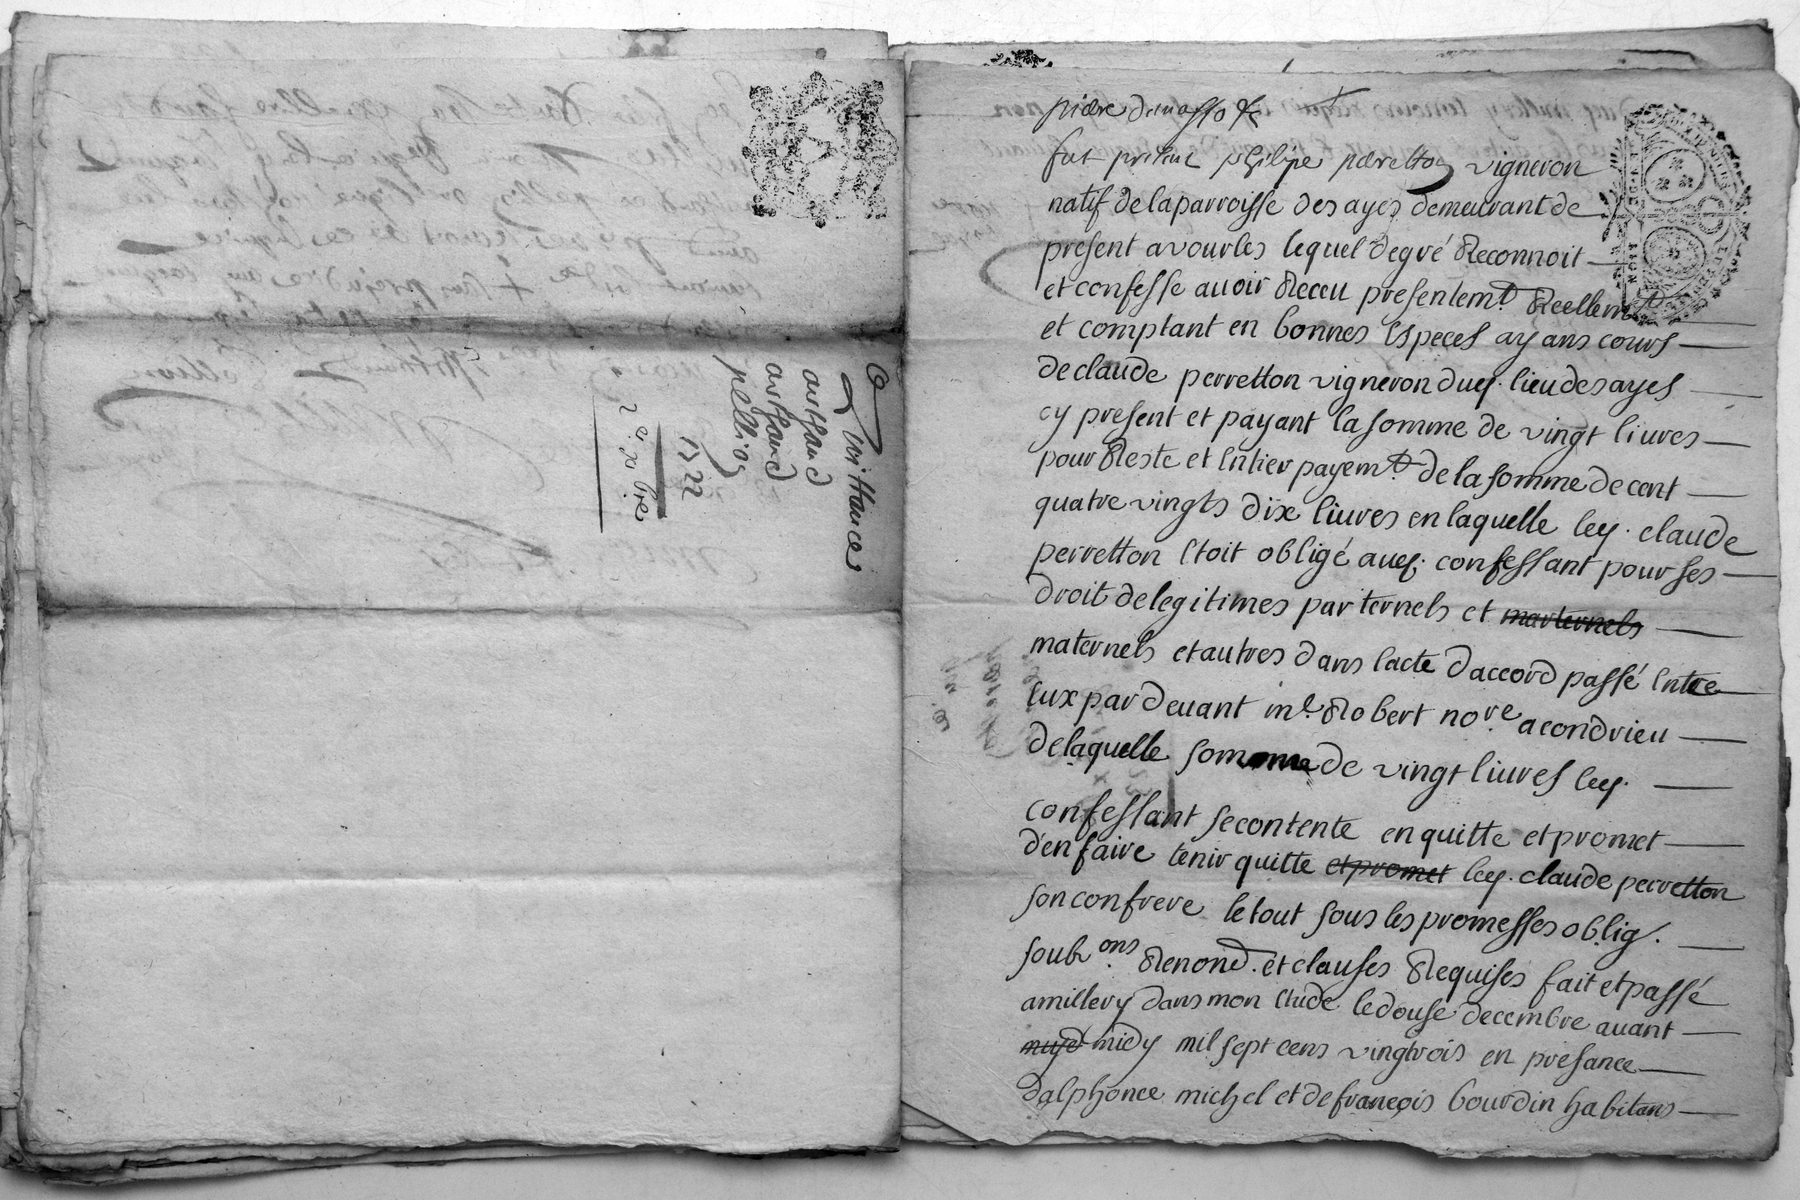 Quittance
arthaud
arthaud
pellion
1722
2e xbre
fut present philipe perretton vigneron
natif de la parroisse des ayes demeurant de
present a vourles lequel de gré Reconnoit
et confesse auoir Receu presentemt. Reellemt
et comptant en bonnes especes ayans cours
de claude perretton vigneron dud. lieu des ayes
cy present et payant la somme de vingt liures
pour Reste et entier payemt. de la somme de cent
quatre vingts dix liures en laquelle led. claude
perretton etoit obligé aud. confessant pour ses
droit de legitimes parternels et marternels
maternels et autres dans lacte daccord passé entre
eux par deuant me. Robert nore a condrieu
de laquelle somme de vingt liures led.
confessant se contente en quitte et promet
den faire tenir quitte et promet led. claude perretton
son confrere le tout sous les promesses oblig.
soub.ons Renond. et clauses Requises fait et passé
a millery dans mon etude le douse decembre auant
midy mil sept cens vingtrois en presance
dalphonce michel et de françois bourdin habitans